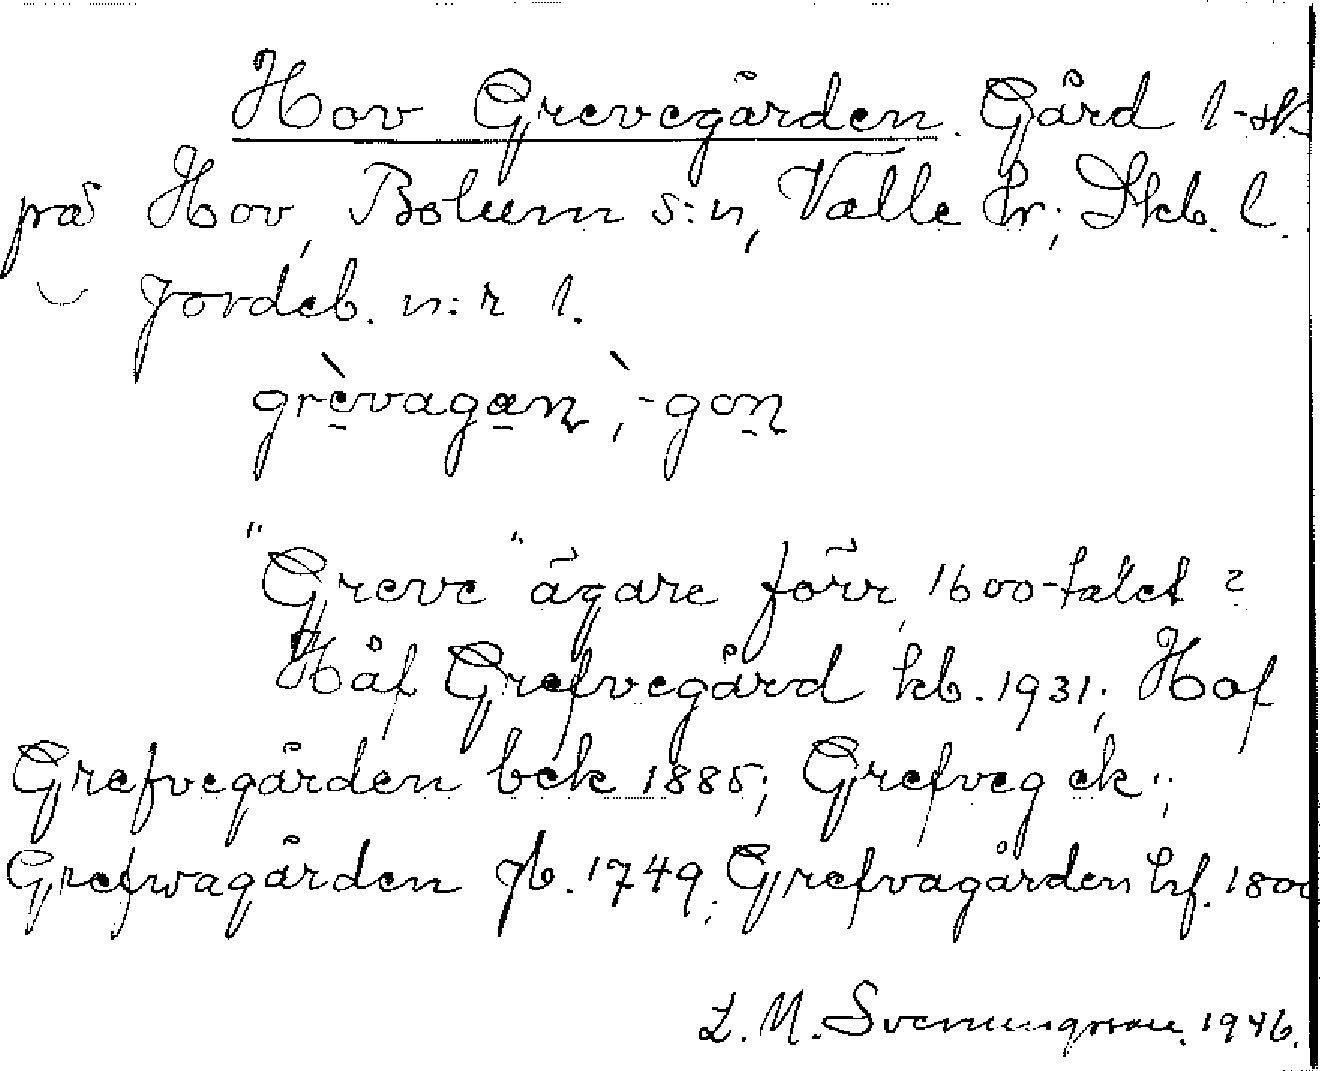 Hov Grevegården. Gård 1-sk
på Hov, Bolum s:n, Valle hr; Skb. l.
Jordeb. n:r 1.
grèvagan, -gon
"Greve" ägare förr, 1600-talet?
Håf Grefvegård kb. 1931; Hof
Grefvegården bek 1885; Grefveg ek";
Grefwagården jb. 1749; Grefvagården hf. 1800
L. M. Svenungsson. 1946.